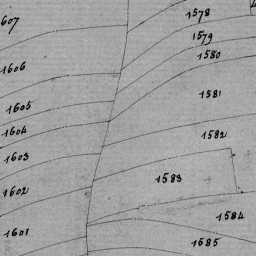 1607
1578
1579
1580
1606
1581
1605
1604
1582
1603
1583
1602
1584
1601
1585